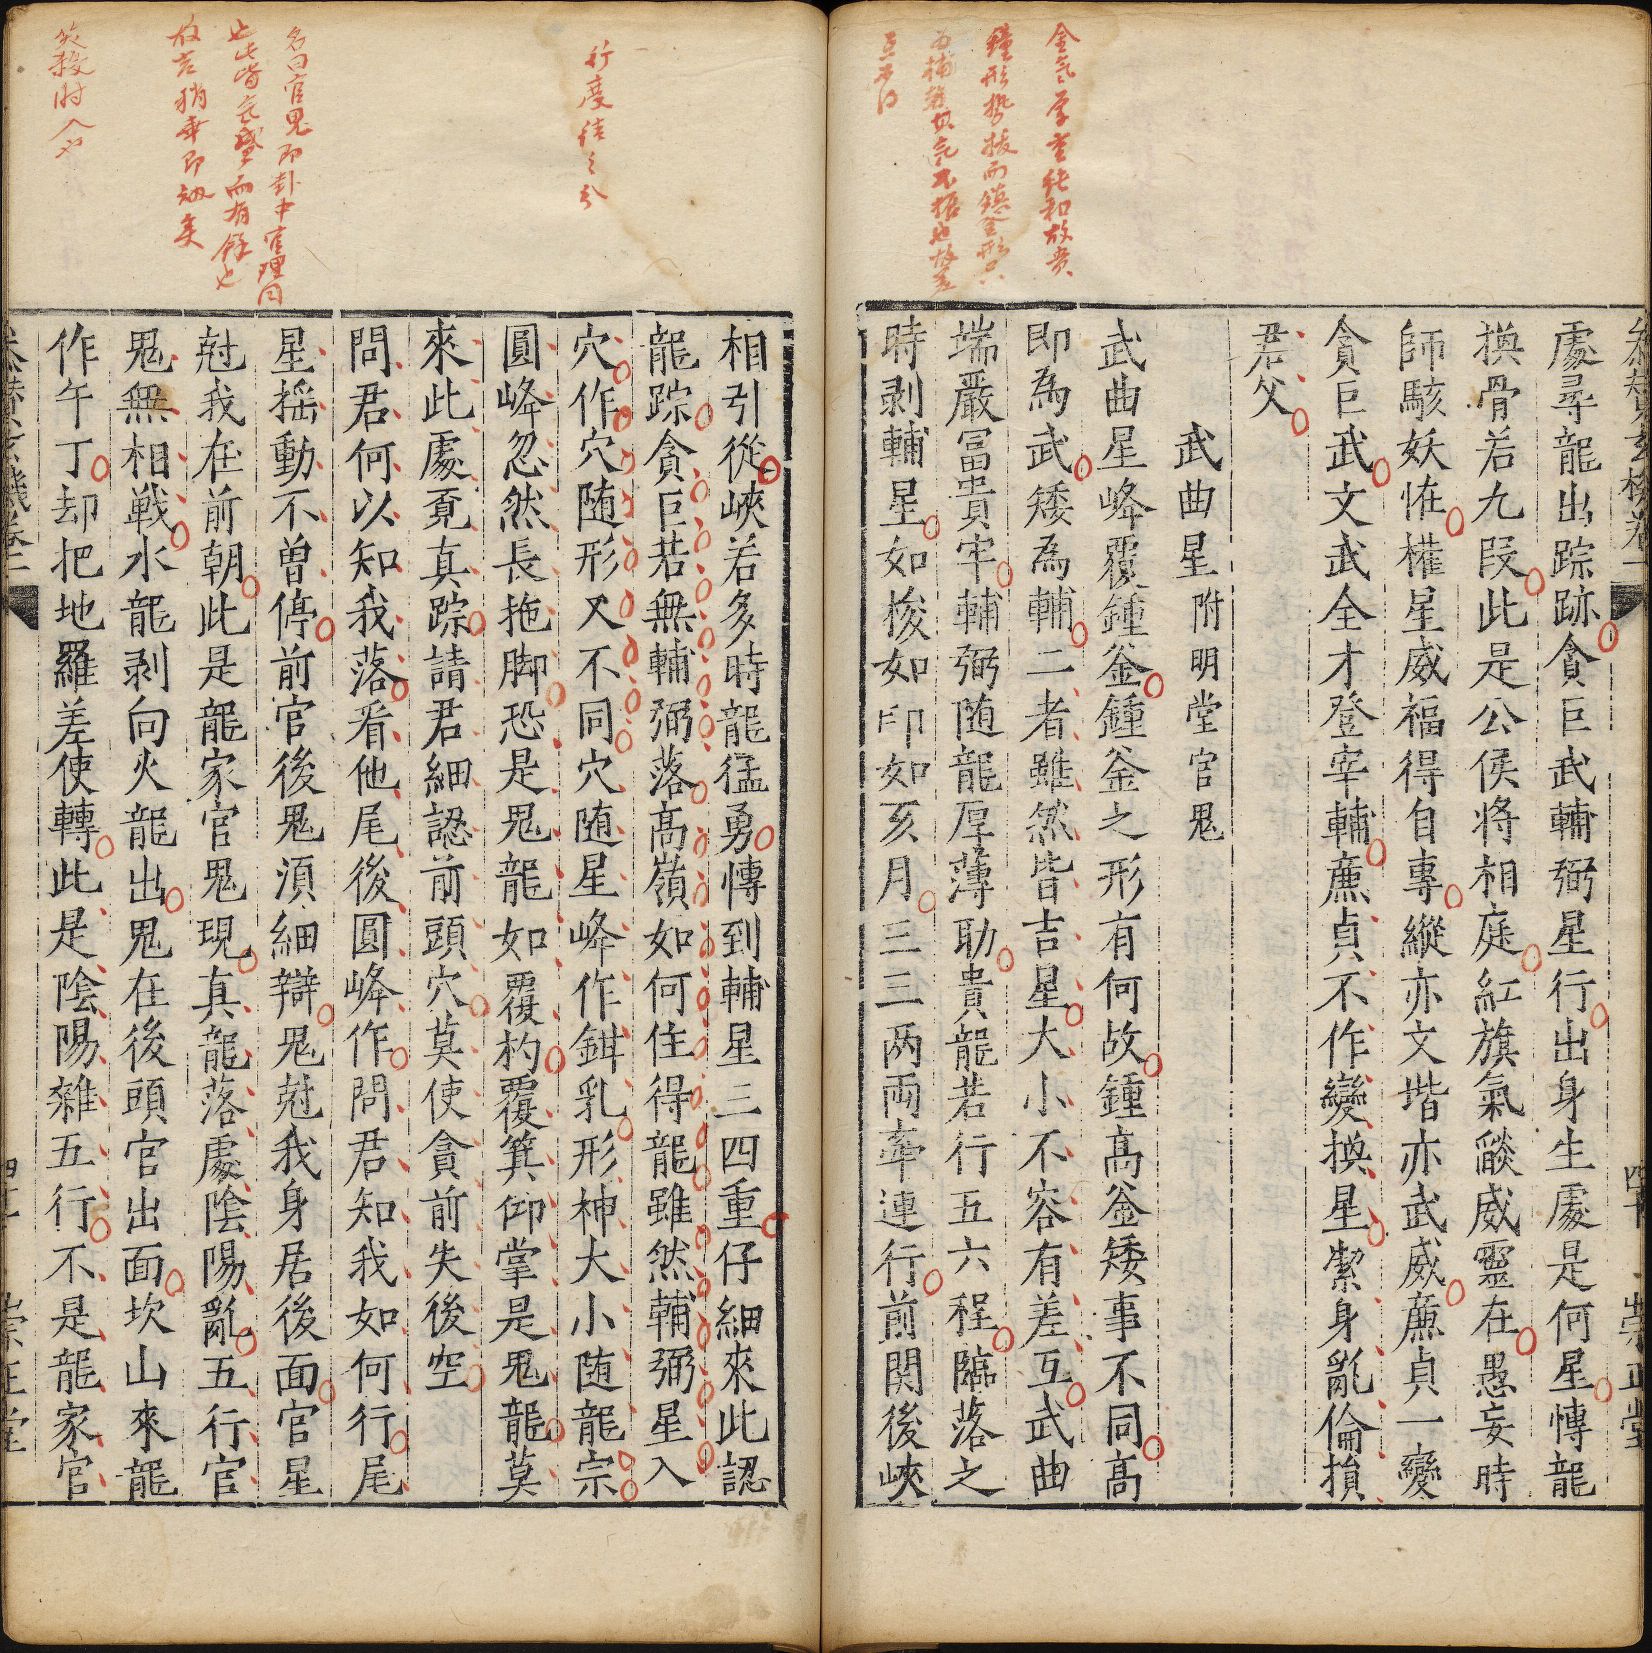 處尋龍出踪跡貪巨武輔弼星行出身生處是何星愽龍
換骨若九段此是公侯将相庭紅旗氣燄威靈在愚妄時
師駭妖恠權星威福得自專縱亦文堦亦武威㢘貞一變
貪巨武文武全才登宰輔㢘貞不作變換星㓗身亂倫損
君父
武曲星附明堂官鬼
武曲星峰覆鍾釡鍾釡之形有何故鍾髙釡矮事不同髙
即為武矮為輔二者雖然皆吉星大小不容有差互武曲
端嚴冨貴牢輔弼随龍厚薄助貴龍若行五六程臨落之
時剥輔星如梭如印如亥月三三两両牽連行前関後峽
相引從峽若多時龍猛勇愽到輔星三四重仔細來此認
龍踪貪巨若無輔弼落髙嶺如何住得龍雖然輔弼星入
穴作穴随形又不同穴随星峰作鉗乳形神大小随龍宗
圓峰忽然長拖脚恐是鬼龍如覆杓覆箕仰掌是鬼龍莫
來此處覔真踪請君細認前頭穴莫使貪前失後空
問君何以知我落看他尾後圓峰作問君知我如何行尾
星揺動不曽停前官後鬼湏細辯鬼尅我身居後面官星
尅我在前朝此是龍家官鬼現真龍落處隂陽亂五行官
鬼無相戦水龍剥向火龍出鬼在後頭官出面坎山來龍
作午丁却把地羅差使轉此是隂陽雜五行不是龍家官
金氣厚重純和故貴
行度結之分
名曰官鬼即卦中官理同